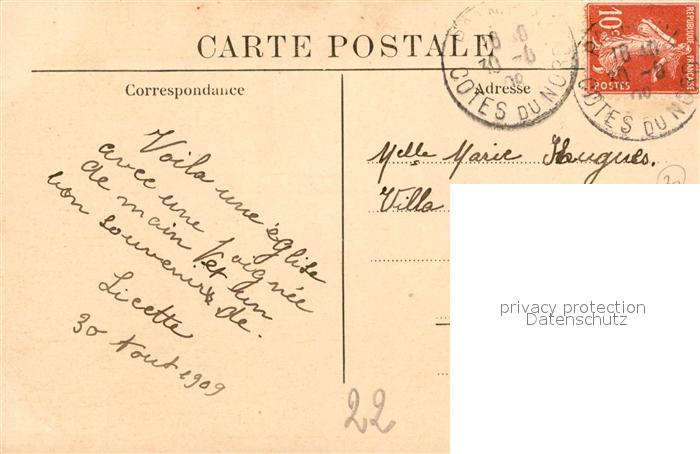 CARTE POSTALE
Correspondance
Adresse
10c
REPUBLIQUE FRANÇAISE
POSTES
COTES DU NORD
30 -8
09
COTES DU NORD
Voila une église
avec une poignée
de main et un
bon souvenir de.
Licette
30 Aout 1909
Melle Marie Hugues.
Villa
22
privacy protection
Datenschutz